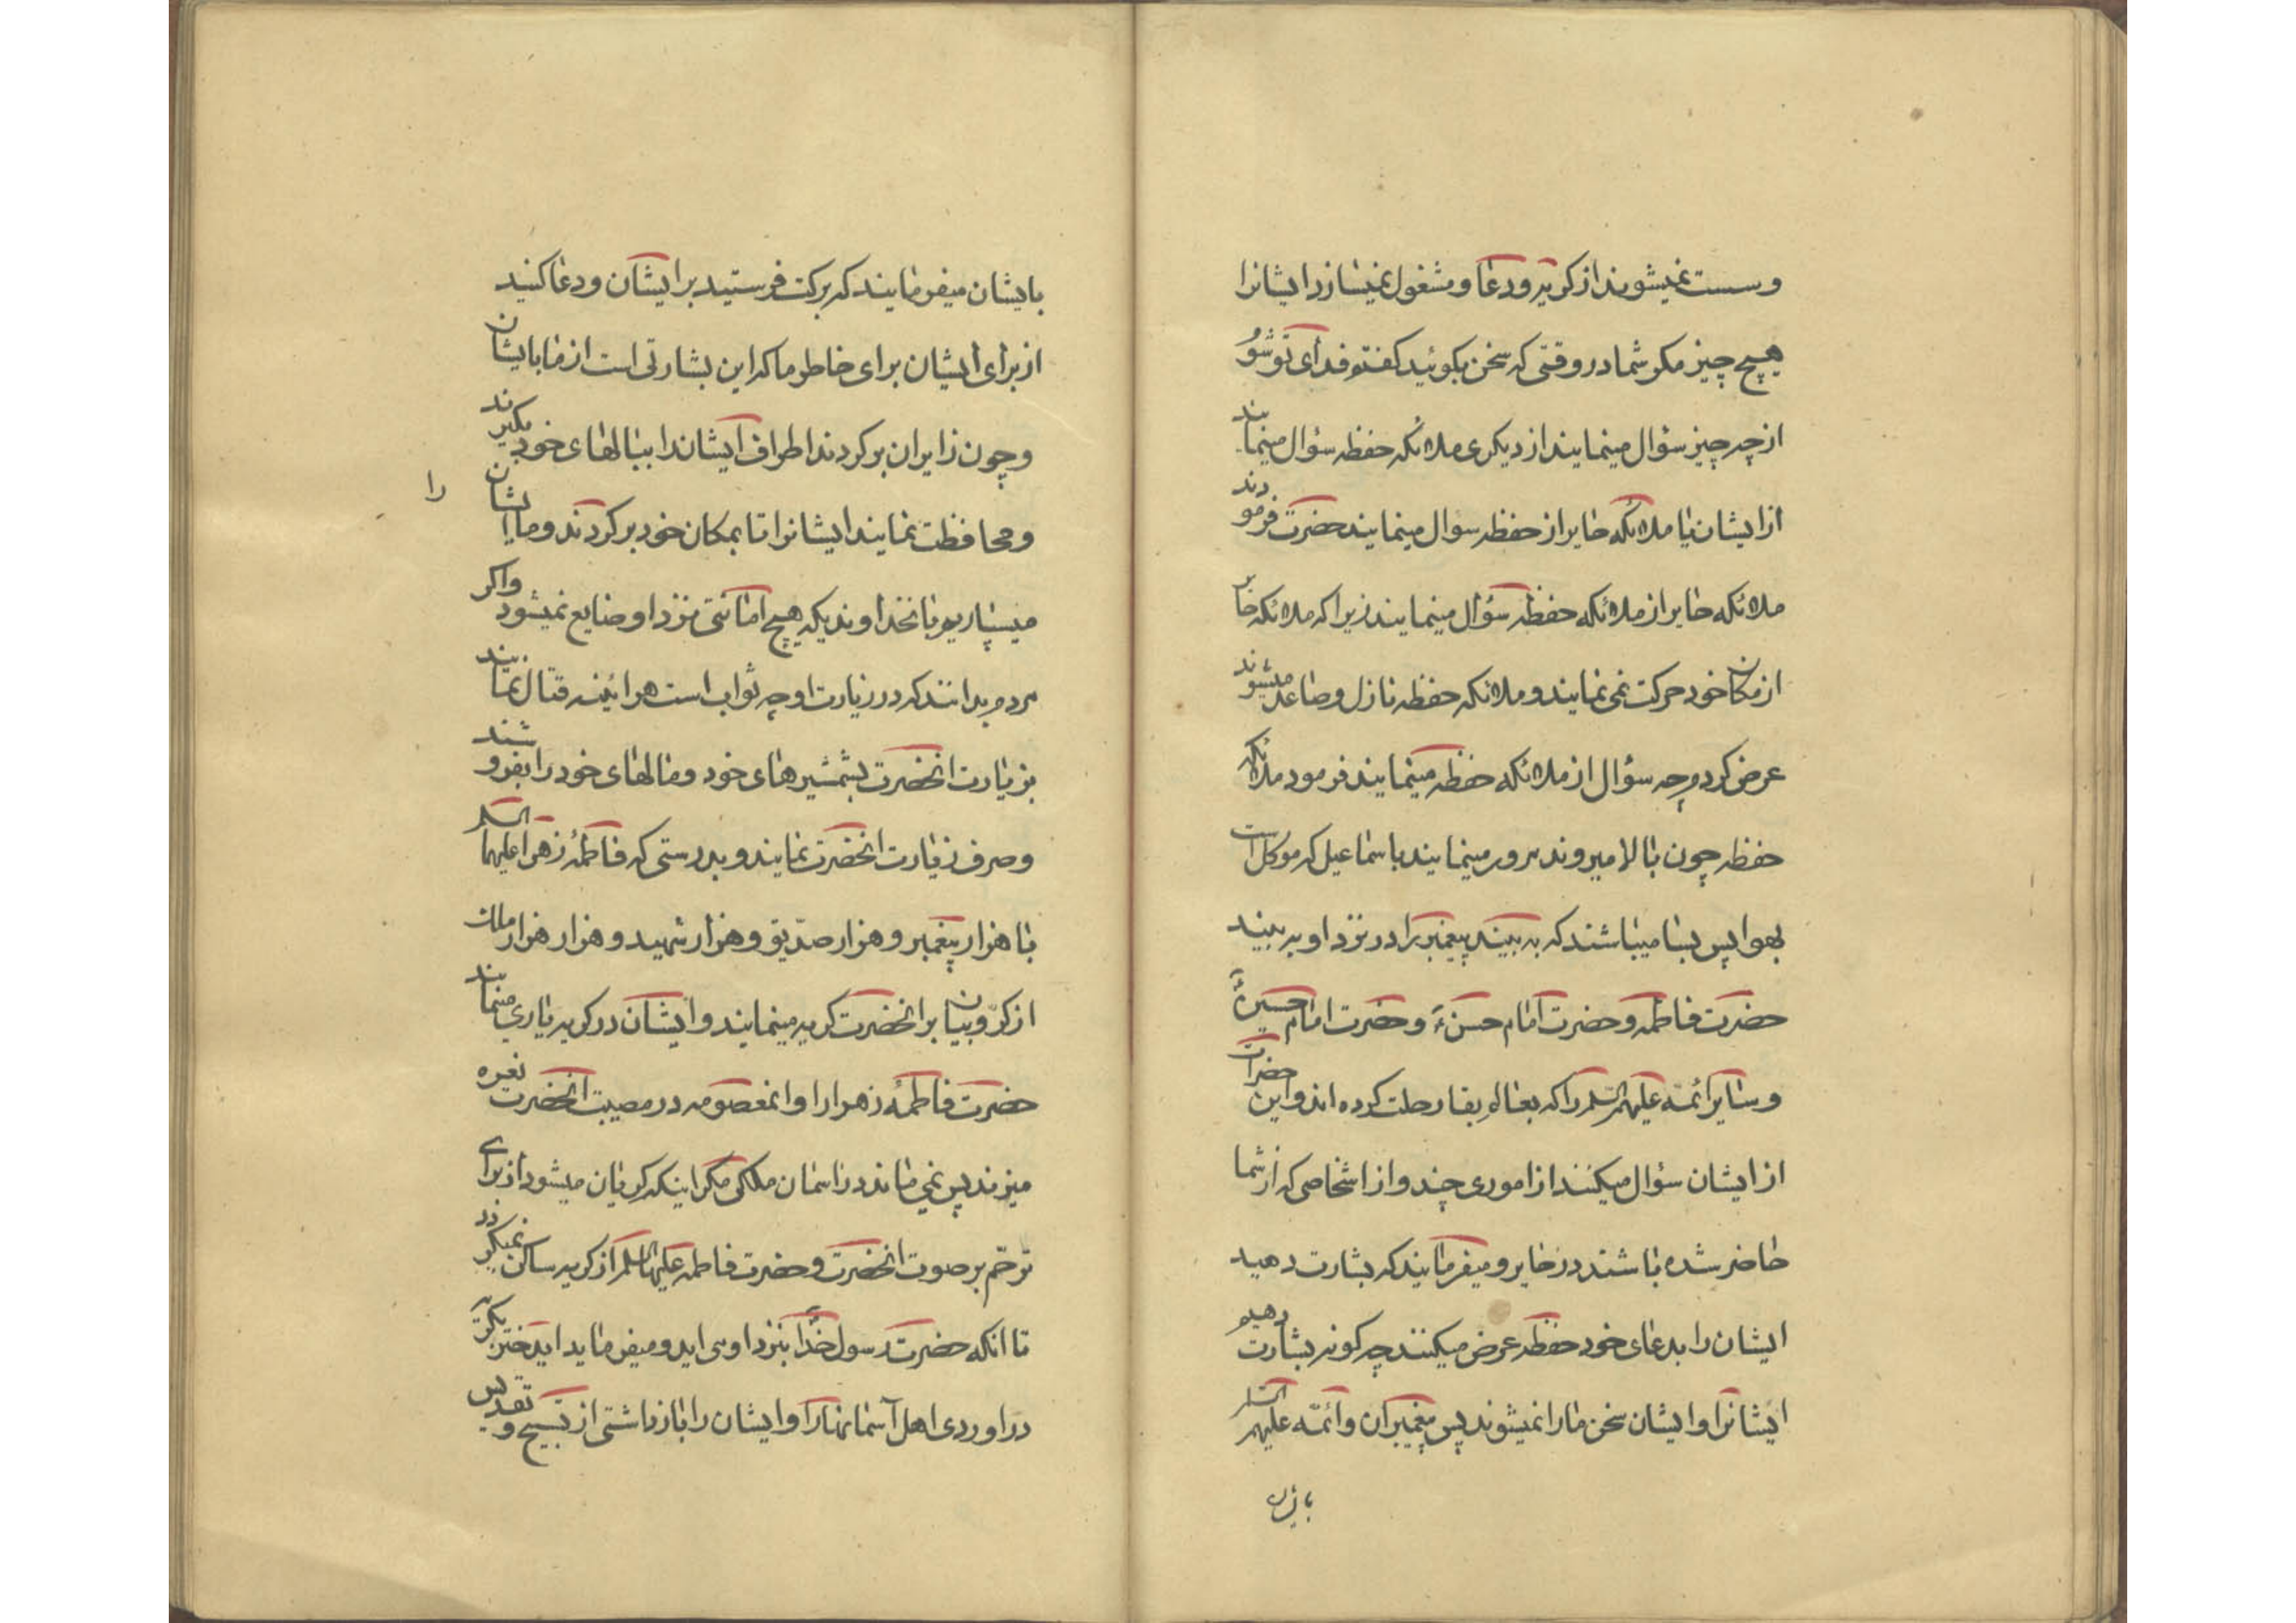 وسست نمیشوند از کریه و دعا و مشغول نمیسازد ایشانرا
هیچ چیز مکر شما در وقتی که سخن بکوئید کفتم فدای تو شوم
از چه چیز سؤال مینمایند از دیکری ملائکه حفظه سؤال مینمایند
از ایشان یا ملائکه حایر از حفظه سوال مینمایند حضرت فرمودند
ملائکه حایر از ملائکه حفظه سؤال مینمایند زیرا که ملائکه حایر
از مکان خود حرکت نمی نمایند و ملائکه حفظه نازل و صاعد میشوند
عرض کردم چه سؤال از ملائکه حفظه مینمایند فرمود ملائکه
حفظه چون بالا میروند مرور مینمایند باسماعیل که موکل است
بهوا پس بسا میباشند که به بینند پیغمبر را در نزد او به بینند
حضرت فاطمه و حضرت امام حسن ع و حضرت امام حسین ع
و سایر ائمه علیهم السلم را که بعالم بقا رحلت کرده اند و این حضرات
از ایشان سؤال میکنند از اموری چند و از اشخاصی که از شما
حاضر شده باشند در حایر و میفرمایند که بشارت دهید
ایشان را بدعای خود حفظه عرض میکنند چه کونه بشارت دهیم
ایشانرا و ایشان سخن مارا نمیشوند پس پیغمبران و ائمه علیهم السلم
بایشان
بایشان میفرمایند که برکت فرستید بر ایشان و دعا کنید
از برای ایشان برای خاطر ما که این بشارتی است از ما بایشان
و چون زایران برکردند اطراف ایشان را ببالهای خود بکیرند
و محافظت نمایند ایشانرا تا بمکان خود برکردند و ما ایشان
را
میسپاریم بانخداوندیکه هیچ امانتی نزد او ضایع نمیشود واکر
مردم بدانند که در زیارت او چه ثواب است هرائینه قتال نمایند
بزیارت انحضرت بشمشیرهای خود و مالهای خود را بفروشند
و صرف زیارت انحضرت نمایند و بدرستی که فاطمهٔ زهرا علیها السلم
با هزار پیغمبر و هزار صدّیق و هزار شهید و هزار هزار ملک
از کرّوبیان بر انحضرت کریه مینمایند و ایشان در کریه یاری مینمایند
حضرت فاطمهٔ زهرا را و انمعصومه در مصیبت انحضرت نعره
میزند پس نمی ماند در اسمان ملکی مکر اینکه کریان میشود از برای
ترحّم بر صوت انحضرت و حضرت فاطمه علیها السلم از کریه ساکن نمیکردد
تا انکه حضرت رسول خدا بنزد او می اید و میفرماید ایدختر بکریه
در اوردی اهل آسمانها را و ایشان را باز داشتی از تسبیح و تقدیس